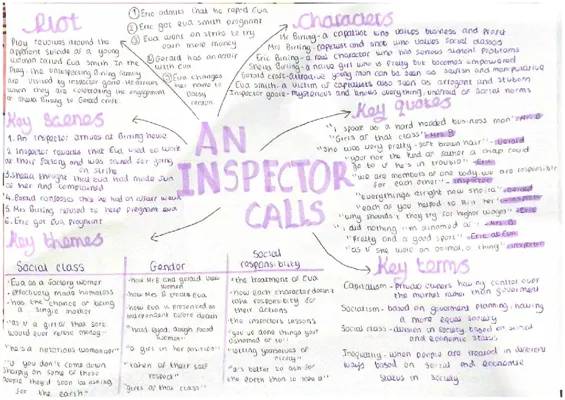 Plot
Play revolves around the
apparent suicide of a young
woman called Eva Smith. In the
Play, the unsuspecting Birling family
are visited by inspector goole. He arrives
when they are celebrating the engagement
of Sheila Birling to Gerald Croft.
① Eric admits that he raped Eva
② Eric got eva smith pregnant
③ Eva went on strike to try
earn more money
④ Gerald has an affair
with Eva
⑤ Eva changes
her name to
Daisy
renton
Characters
Mr Birling - a capitalist who values business and profit
Mrs Birling - capitalist and snob who values social classes
Eric Birling - a real character who has serious problems
Sheila Birling - a naive girl who is pretty but becomes empowered
Gerald Croft - attractive young man can be seen as selfish and manipulative
Eva Smith - a victim of capitalists also seen as arrogant and stubborn
Inspector goole - mysterious and knows everything, unafraid of social norms
Key scenes
1. An inspector arrives at Birling house
2 Inspector reveals that Eva used to work
at their factory and was sacked for going
on strike
3. Sheila thought that Eva had made fun
of her and complained
4. Gerald confesses that he had an affair w/ eva
5 Mrs Birling refused to help pregnant eva
6. Eric got Eva pregnant
AN
INSPECTOR
CALLS
Key quotes
"I speak as a hard headed business man" Mr B
"Girls of that class" Mrs B
"She was very pretty - soft brown hair" Gerald
"your not the kind of father a chap could
go to when he's in trouble" Eric
"we are members of one body we are responsible
for each other" inspector
"Everything's alright now Sheila" Gerald
"each of you helped to kill her" inspector
"why shouldn't they try for higher wages"
"I did nothing I'm ashamed of" Mrs B
"Pretty and a good sport" Eric of Eva
"as if she were an animal, a thing" inspector
Key themes
Social class
- Eva as a factory worker
- effectively made homeless
- has the chance of being
a single mother
"as if a girl of that sort
would ever refuse money"
"he's a notorious womaniser"
"if you don't come down
sharply on some of these
people they'd soon be asking
for the earth"
Gender
- how Mrs B and gerald view
women
- how Mrs B treats eva
- how Eva is presented as
independent before death
"hard eyed, dough faced
women"
"a girl in her position"
"token of their self
respect"
"girls of that class"
Social
responsibility
- the treatment of Eva
- how each character doesn't
take responsibility for
their actions
- the inspectors lessons
"you've done things your
ashamed of to"
"letting yourselves off
nicely"
"it's better to ask for
the earth than to take it"
Key terms
Capitalism - private owners have control over
the market rather than government
Socialism - based on government planning, having
a more equal society
Social class - division in society based of social
and economic status
Inequality - when people are treated in different
ways based on social and economic
status in society